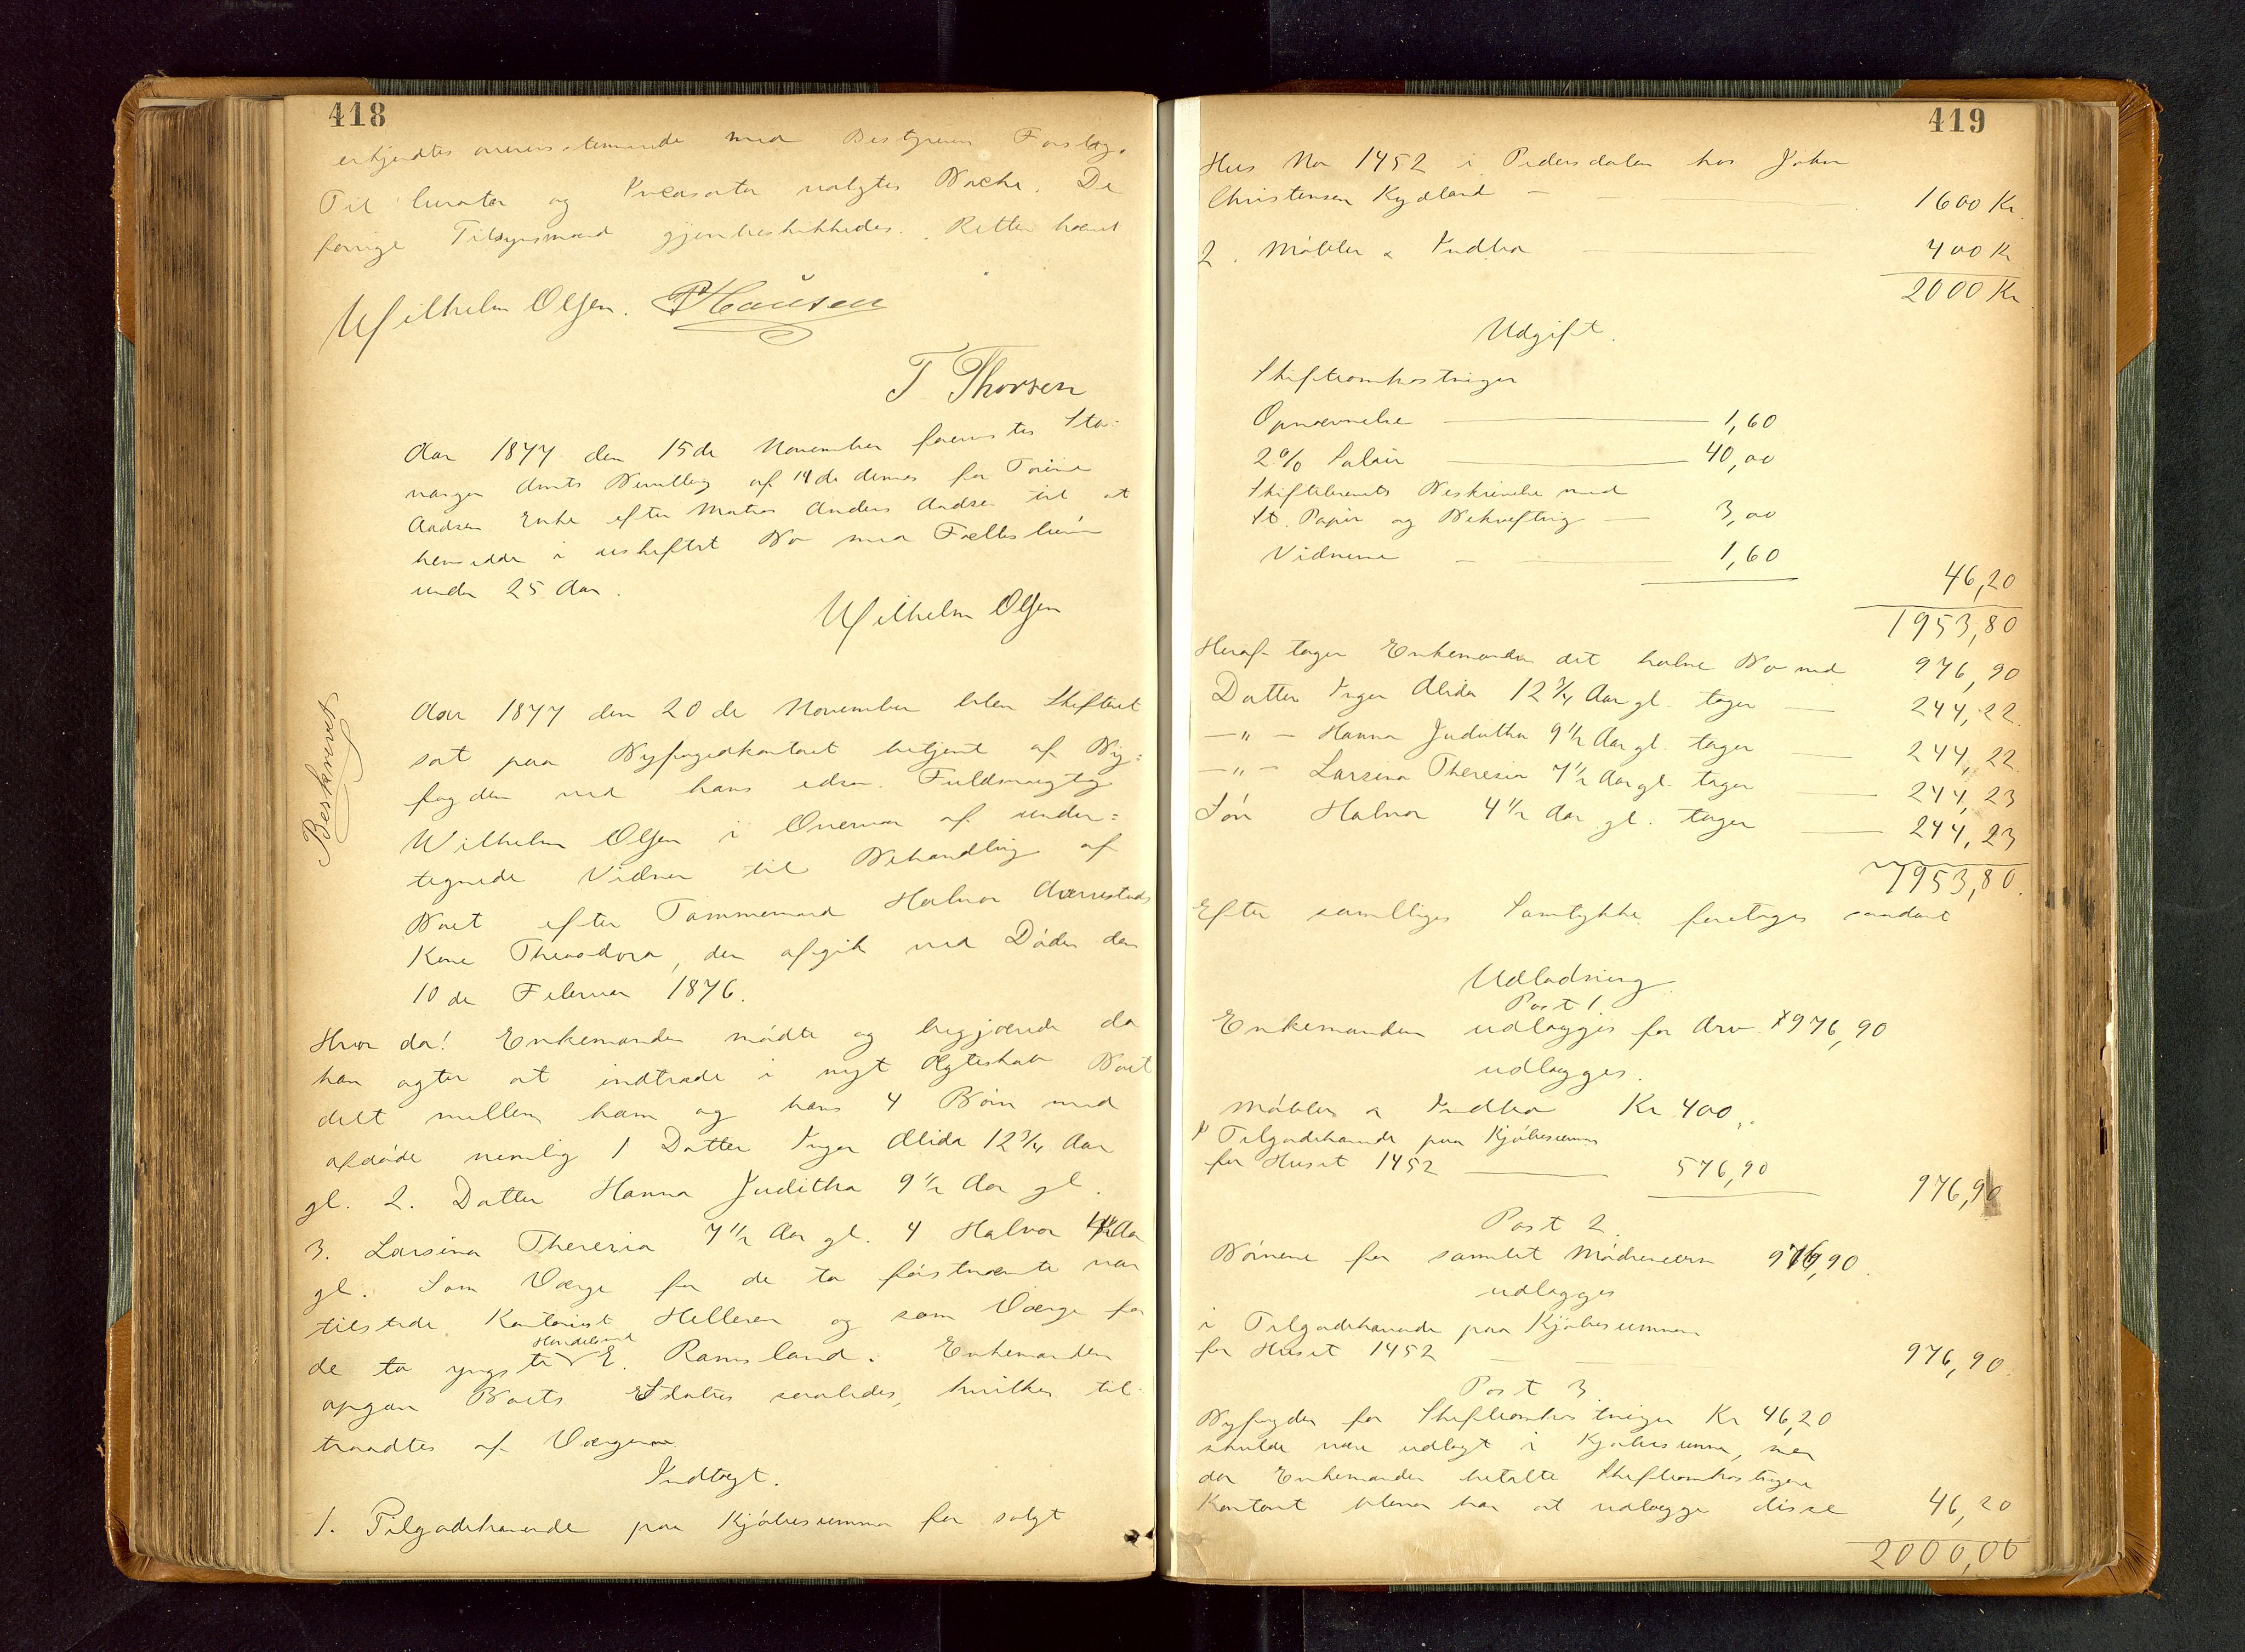 418
erkjendtes overensstemmende med Bestyrerens Forslag.
Til Curator og Incasator valgtes Bache. De
forrige Tilsynsmænd gjenbeskikkedes. Retten hævet
Wilhelm Olsen. PHansen
T Thorsen
Aar 1877 den 15de November forevistes Sta-
vanger Amts Bevilling af 14de dennes for
Aadsen Enke efter Matros Anders Aadsen til at
hensidde i uskiftet Bo med Fællesbørn
under 25 Aar.
Wilhelm Olsen
Beskrevet
Aar 1877 den 20de November blev Skifteret
sat paa Byfogedkontoret betjent af By-
fogden ved hans edsv. Fuldmægtig
Wilhelm Olsen i Overvær af under-
tegnede Vidner til Behandling af
Boet efter Tømmermand Halvor Aarrestads
Kone Theodora, der afgik ved Døden den
10de Februar 1876.
Hvor da! Enkemanden mødte og begjærede da
han agter at indtræde i nyt Ægteskab Boet
delt mellem ham og hans 4 Børn med
afdøde nemlig 1 Datter Inger Alida 12 3/4 Aar
gl. 2. Datter Hanna Juditha 9 1/2 Aar gl.
3. Larsina Theresia 7 1/2 Aar gl. 4 Halvor 4 1/2 Aar
gl. Som Værge for de to førstnævnte var
tilstede Kontorist Helleren og som Værge for
de to yngste Handelsmd E. Ramsland. Enkemanden
opgav Boets Status saaledes, hvilket til-
traadtes af Værgerne
Indtægt.
1. Tilgodehavende paa Kjøbesummen for solgt
419
Hus No 1452 i Pedersdalen hos John
Christensen Kydland — 1600 Kr.
2. Møbler & Indbo — 400 Kr
2000 Kr
Udgift.
Skifteomkostninger
Opnævnelse — 1,60
2% Salair — 40,00
Skiftebrevets Beskrivelse med
St. Papir og Bekræftng — 3,00
Vidnerne — 1,60
46,20
1953,80
Heraf tager Enkemanden det halve Bo med 976,90
Datter Inger Alida 12 3/4 Aar gl. tager — 244,22.
—"— Hanna Juditha 9 1/2 Aar gl. tager — 244,22
—"— Larsina Theresia 7 1/2 Aar gl. tager — 244,23
Søn Halvor 4 1/2 Aar gl. tager — 244,23
1953,80.
Efter samtliges Samtykke foretages saadant
Udlodning.
Post 1.
Enkemanden udlægges for Arv 976,90
udlægges.
Møbler & Indbo Kr 400,,
Tilgodehavende paa Kjøbesummen
for Huset 1452 — 576,90
976,90
Post 2
Børnene for samlet Mødrenearv 976,90.
udlægges
i Tilgodehavende paa Kjøbesummen
for Huset 1452 — 976,90.
Post 3
Byfogden for Skifteomkostninger Kr 46,20
skulde være udlagt i Kjøbesummen, men
da Enkemanden betalte Skifteomkostningerne
Kontant blev han at udlægge disse 46,20
2000,00